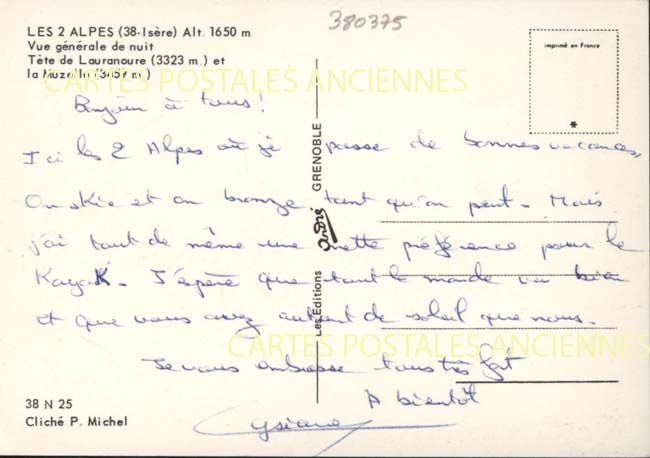 380375
LES 2 ALPES (38-Isère) Alt. 1650 m.
Vue générale de nuit
Tête de Lauranoure (3323 m.) et
la Muzelle (3459 m.)
imprimé en France
CARTES POSTALES ANCIENNES
Bonjour à tous !
Ici les 2 Alpes où je passe de bonnes vacances,
On skie et on bronze tant qu'on peut. Mais
j'ai tout de même une nette préférence pour le
Kayak. J'espère que tout le monde va bien
et que vous avez autant de soleil que nous.
CARTES POSTALES ANCIENNES
Je vous embrasse tous très fort
A bientôt
Les Editions André GRENOBLE
38 N 25
Cliché P. Michel